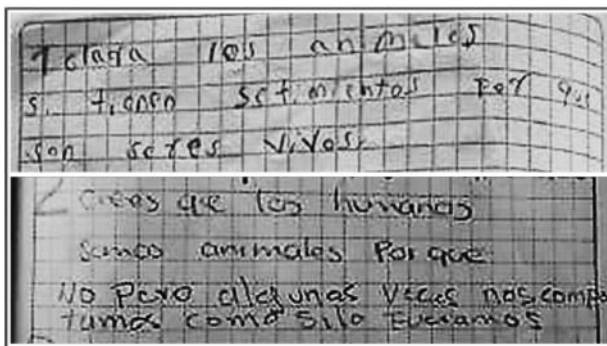 1 claro los animales
si tienen setimientos por que
son seres vivos
2 Creas que los humanos
Somos animales Por que
No Pero algunas veces nos compo
tumos como silo Fueramos